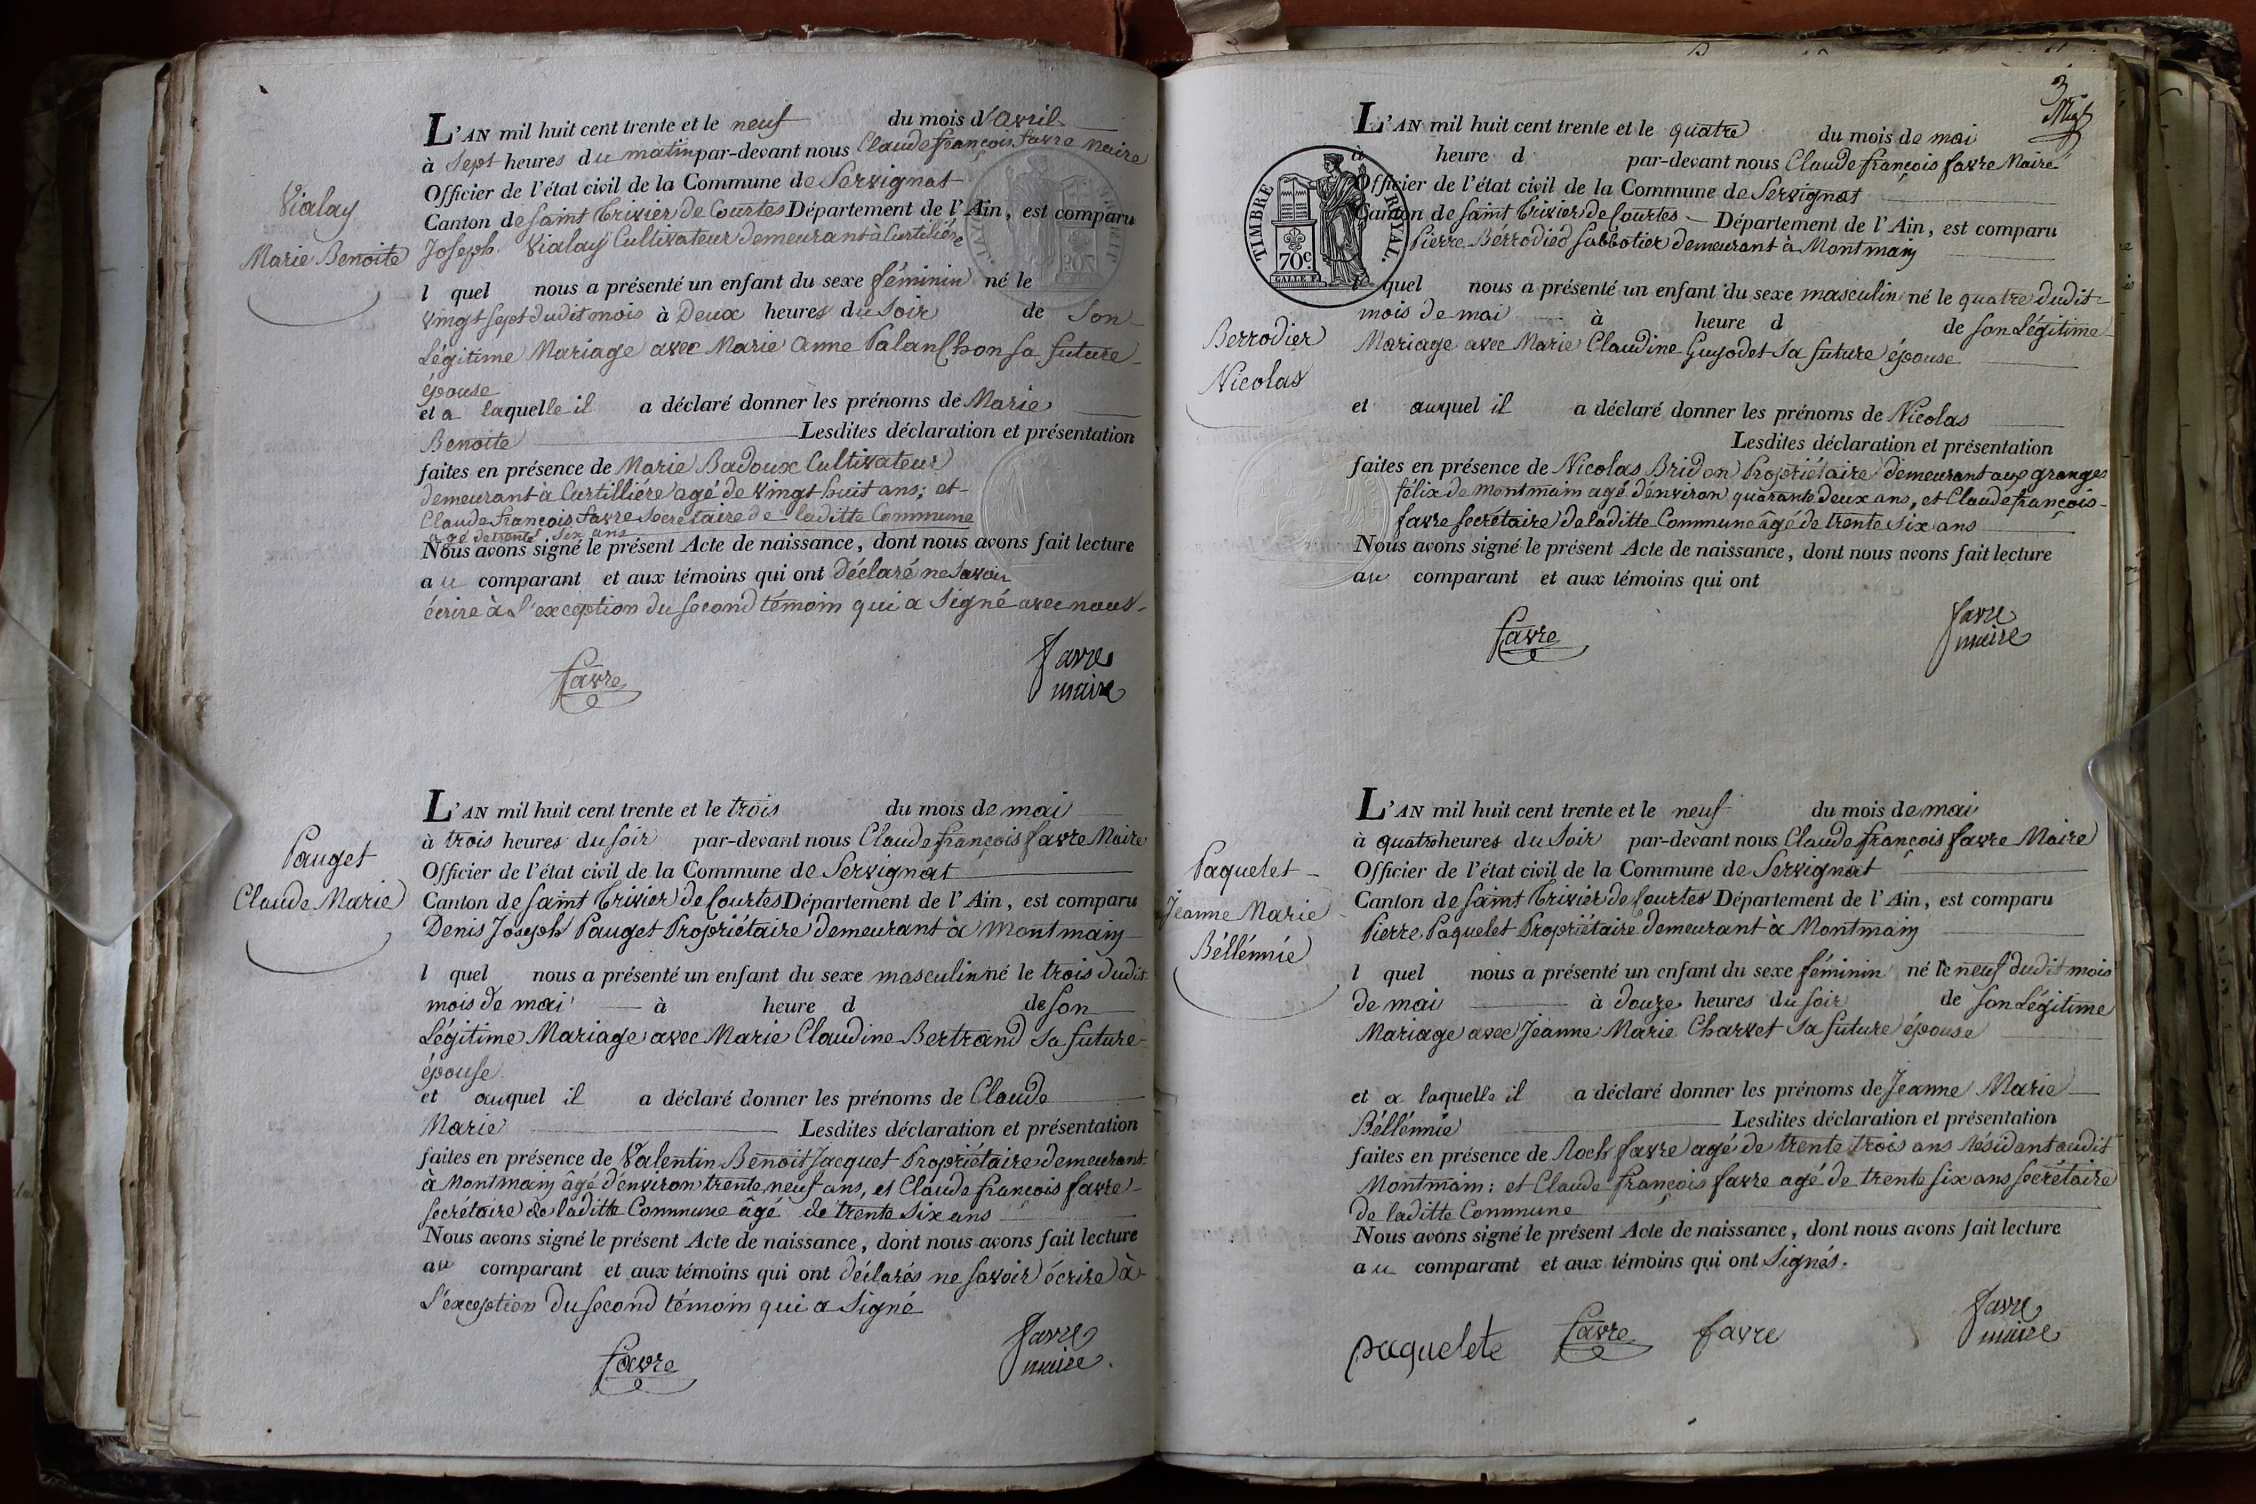 Vialay
Marie Benoite
L'AN mil huit cent trente et le neuf du mois d'avril
à sept heures du matin par-devant nous Claude françois favre maire
Officier de l'état civil de la Commune de Servignat
Canton de Saint Trivier de Courtes Département de l'Ain, est comparu
Joseph Vialay Cultivateur demeurant à Curtiliére
l quel nous a présenté un enfant du sexe féminin né le
vingt sept dudit mois à Deux heures du Soir de Son
Légitime Mariage avec Marie Anne Palanchon sa future
épouse
et a laquelle il a déclaré donner les prénoms de Marie
Benoite Lesdites déclaration et présentation
faites en présence de Marie Badoux Cultivateur
demeurant à Curtilliére agé de vingt huit ans; et
Claude françois favre Secretaire de laditte Commune
agé de trente six ans
Nous avons signé le présent Acte de naissance, dont nous avons fait lecture
au comparant et aux témoins qui ont Déclaré ne Savoir
écrire à L'exception du second témoin qui a Signé avec nous.
favre
favre
maire
Pauget
Claude Marie
L'AN mil huit cent trente et le trois du mois de mai
à trois heures du soir par-devant nous Claude françois favre Maire
Officier de l'état civil de la Commune de Servignat
Canton de Saint Trivier de Courtes Département de l'Ain, est comparu
Denis Joseph Pauget Propriétaire demeurant à Montmain
l quel nous a présenté un enfant du sexe masculin né le trois dudit
mois de mai à heure d de son
Légitime Mariage avec Marie Claudine Bertrand sa future
épouse
et auquel il a déclaré donner les prénoms de Claude
Marie Lesdites déclaration et présentation
faites en présence de Valentin Benoit Jacquet Propriétaire demeurant
à Montmain âgé d'environ trente neuf ans, et Claude françois favre
secrétaire de laditte Commune âgé de trente six ans
Nous avons signé le présent Acte de naissance, dont nous avons fait lecture
au comparant et aux témoins qui ont déclarés ne savoir écrire à
L'exception du second témoin qui a Signé
favre
favre
maire.
3
TIMBRE ROYAL.
70c
Berrodier
Nicolas
L'AN mil huit cent trente et le quatre du mois de mai
à heure d par-devant nous Claude françois favre Maire
Officier de l'état civil de la Commune de Servignat
Canton de Saint Trivier de Courtes Département de l'Ain, est comparu
Pierre Bérrodied Sabbotier demeurant à Montmain
l quel nous a présenté un enfant du sexe masculin né le quatre dudit
mois de mai à heure d de son Légitime
Mariage avec Marie Claudine Guyodet sa future épouse
et auquel il a déclaré donner les prénoms de Nicolas
Lesdites déclaration et présentation
faites en présence de Nicolas Bridon Propriétaire demeurant aux granges
félix de Montmain agé d'environ quarante deux ans, et Claude françois
favre secrétaire de laditte Commune âgé de trente six ans
Nous avons signé le présent Acte de naissance, dont nous avons fait lecture
au comparant et aux témoins qui ont
favre
favre
maire
Paquelet
Jeanne Marie
Béllénnie
L'AN mil huit cent trente et le neuf du mois de mai
à quatre heures du Soir par-devant nous Claude françois favre Maire
Officier de l'état civil de la Commune de Servignat
Canton de Saint Trivier de Courtes Département de l'Ain, est comparu
Pierre Paquelet Propriétaire demeurant à Montmain
l quel nous a présenté un enfant du sexe féminin né le neuf dudit mois
de mai à douze heures du soir de son Légitime
Mariage avec Jeanne Marie Charvet sa future épouse
et a laquelle il a déclaré donner les prénoms de Jeanne Marie
Béllénnie Lesdites déclaration et présentation
faites en présence de Roch favre agé de trente trois ans Résidant audit
Montmain: et Claude françois favre agé de trente six ans secrétaire
de laditte Commune
Nous avons signé le présent Acte de naissance, dont nous avons fait lecture
au comparant et aux témoins qui ont Signés.
paquelete favre favre
favre
maire